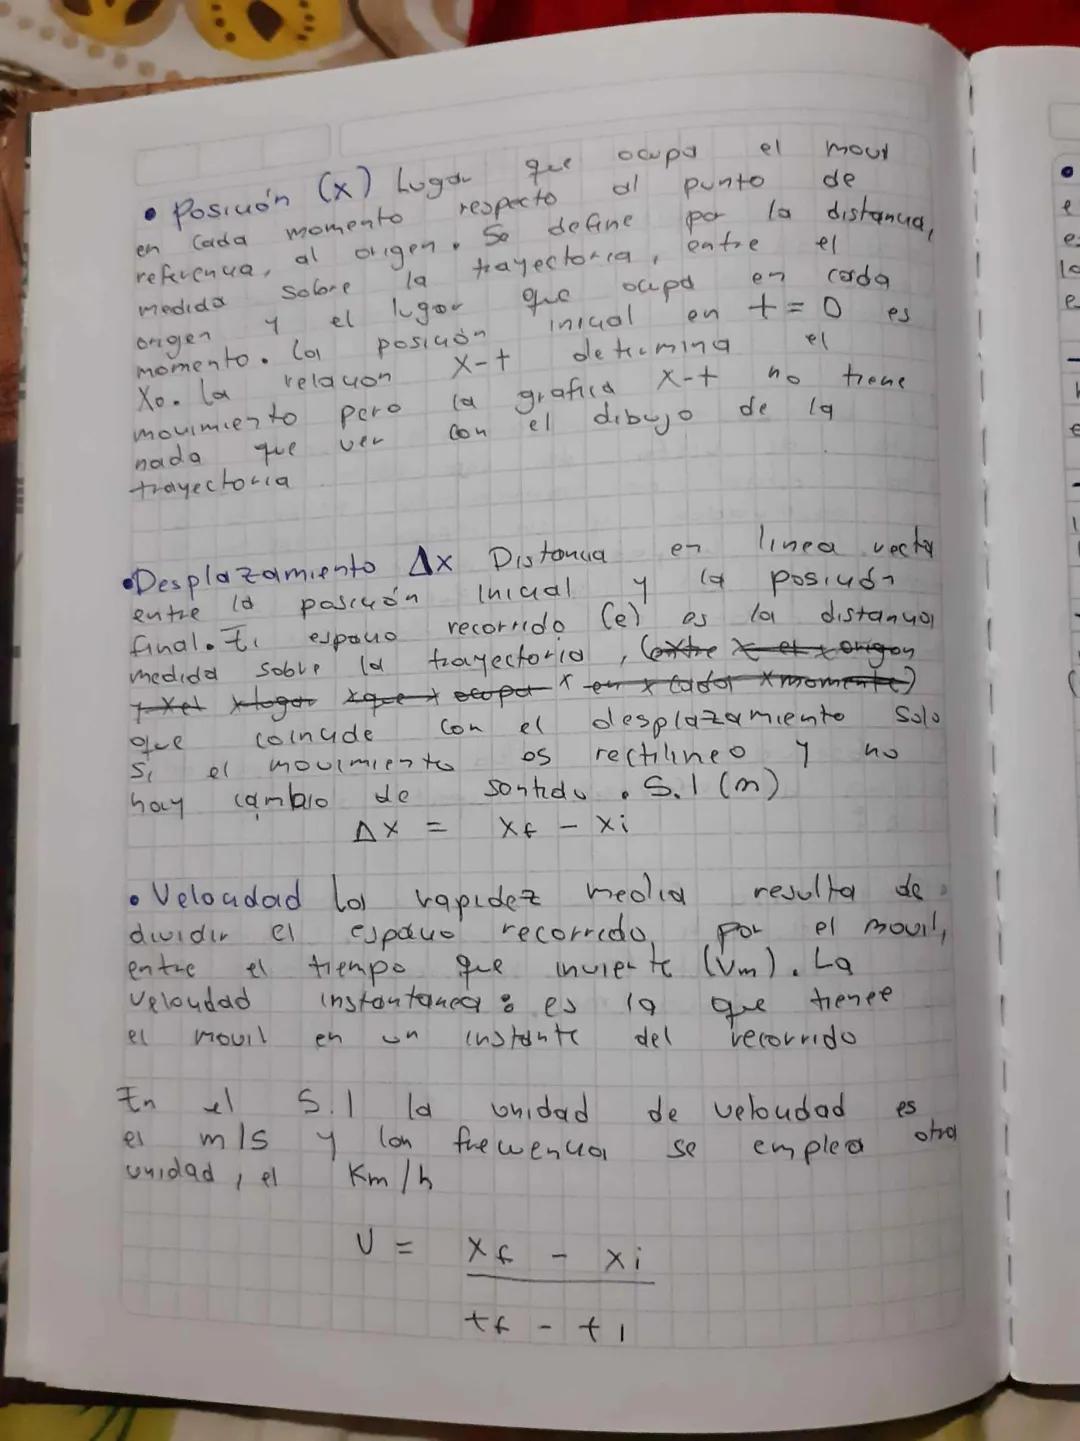 • Posición (x) Lugar que ocupa el movil
en cada momento respecto al punto de
referencia, al origen. Se define por la distancia,
medida sobre la trayectoria, entre el
origen y el lugar que ocupa en cada
momento. La posición inicial en t = 0 es
Xo. La relacion x-t determina el
movimiento pero la grafica x-t no tiene
nada que ver con el dibujo de la
trayectoria
•Desplazamiento Δx Distancia en linea recta
entre la posición inicial y la posición
final. El espacio recorrido (e) es la distancia
medida sobre la trayectoria, (entre x el x origen
y x el x lugar x que x ocupa x en x cada x momento)
que coincide con el desplazamiento solo
si el movimiento es rectilineo y no
hay cambio de sentido. S.I (m)
Δx = xf - xi
• Velocidad La rapidez media resulta de
dividir el espacio recorrido, por el movil,
entre el tiempo que invierte (Vm). La
velocidad instantanea: es la que tienee
el movil en un instante del recorrido
En el S.I la unidad de velocidad es
el m/s y con frecuencia se emplea otra
unidad, el Km/h
V = xf - xi
tf - ti